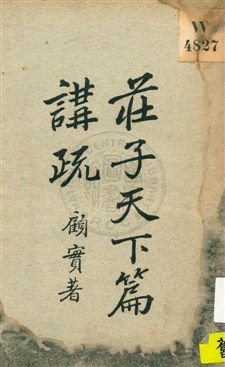 莊子天下篇
講疏
顧實著
W
4827
舊